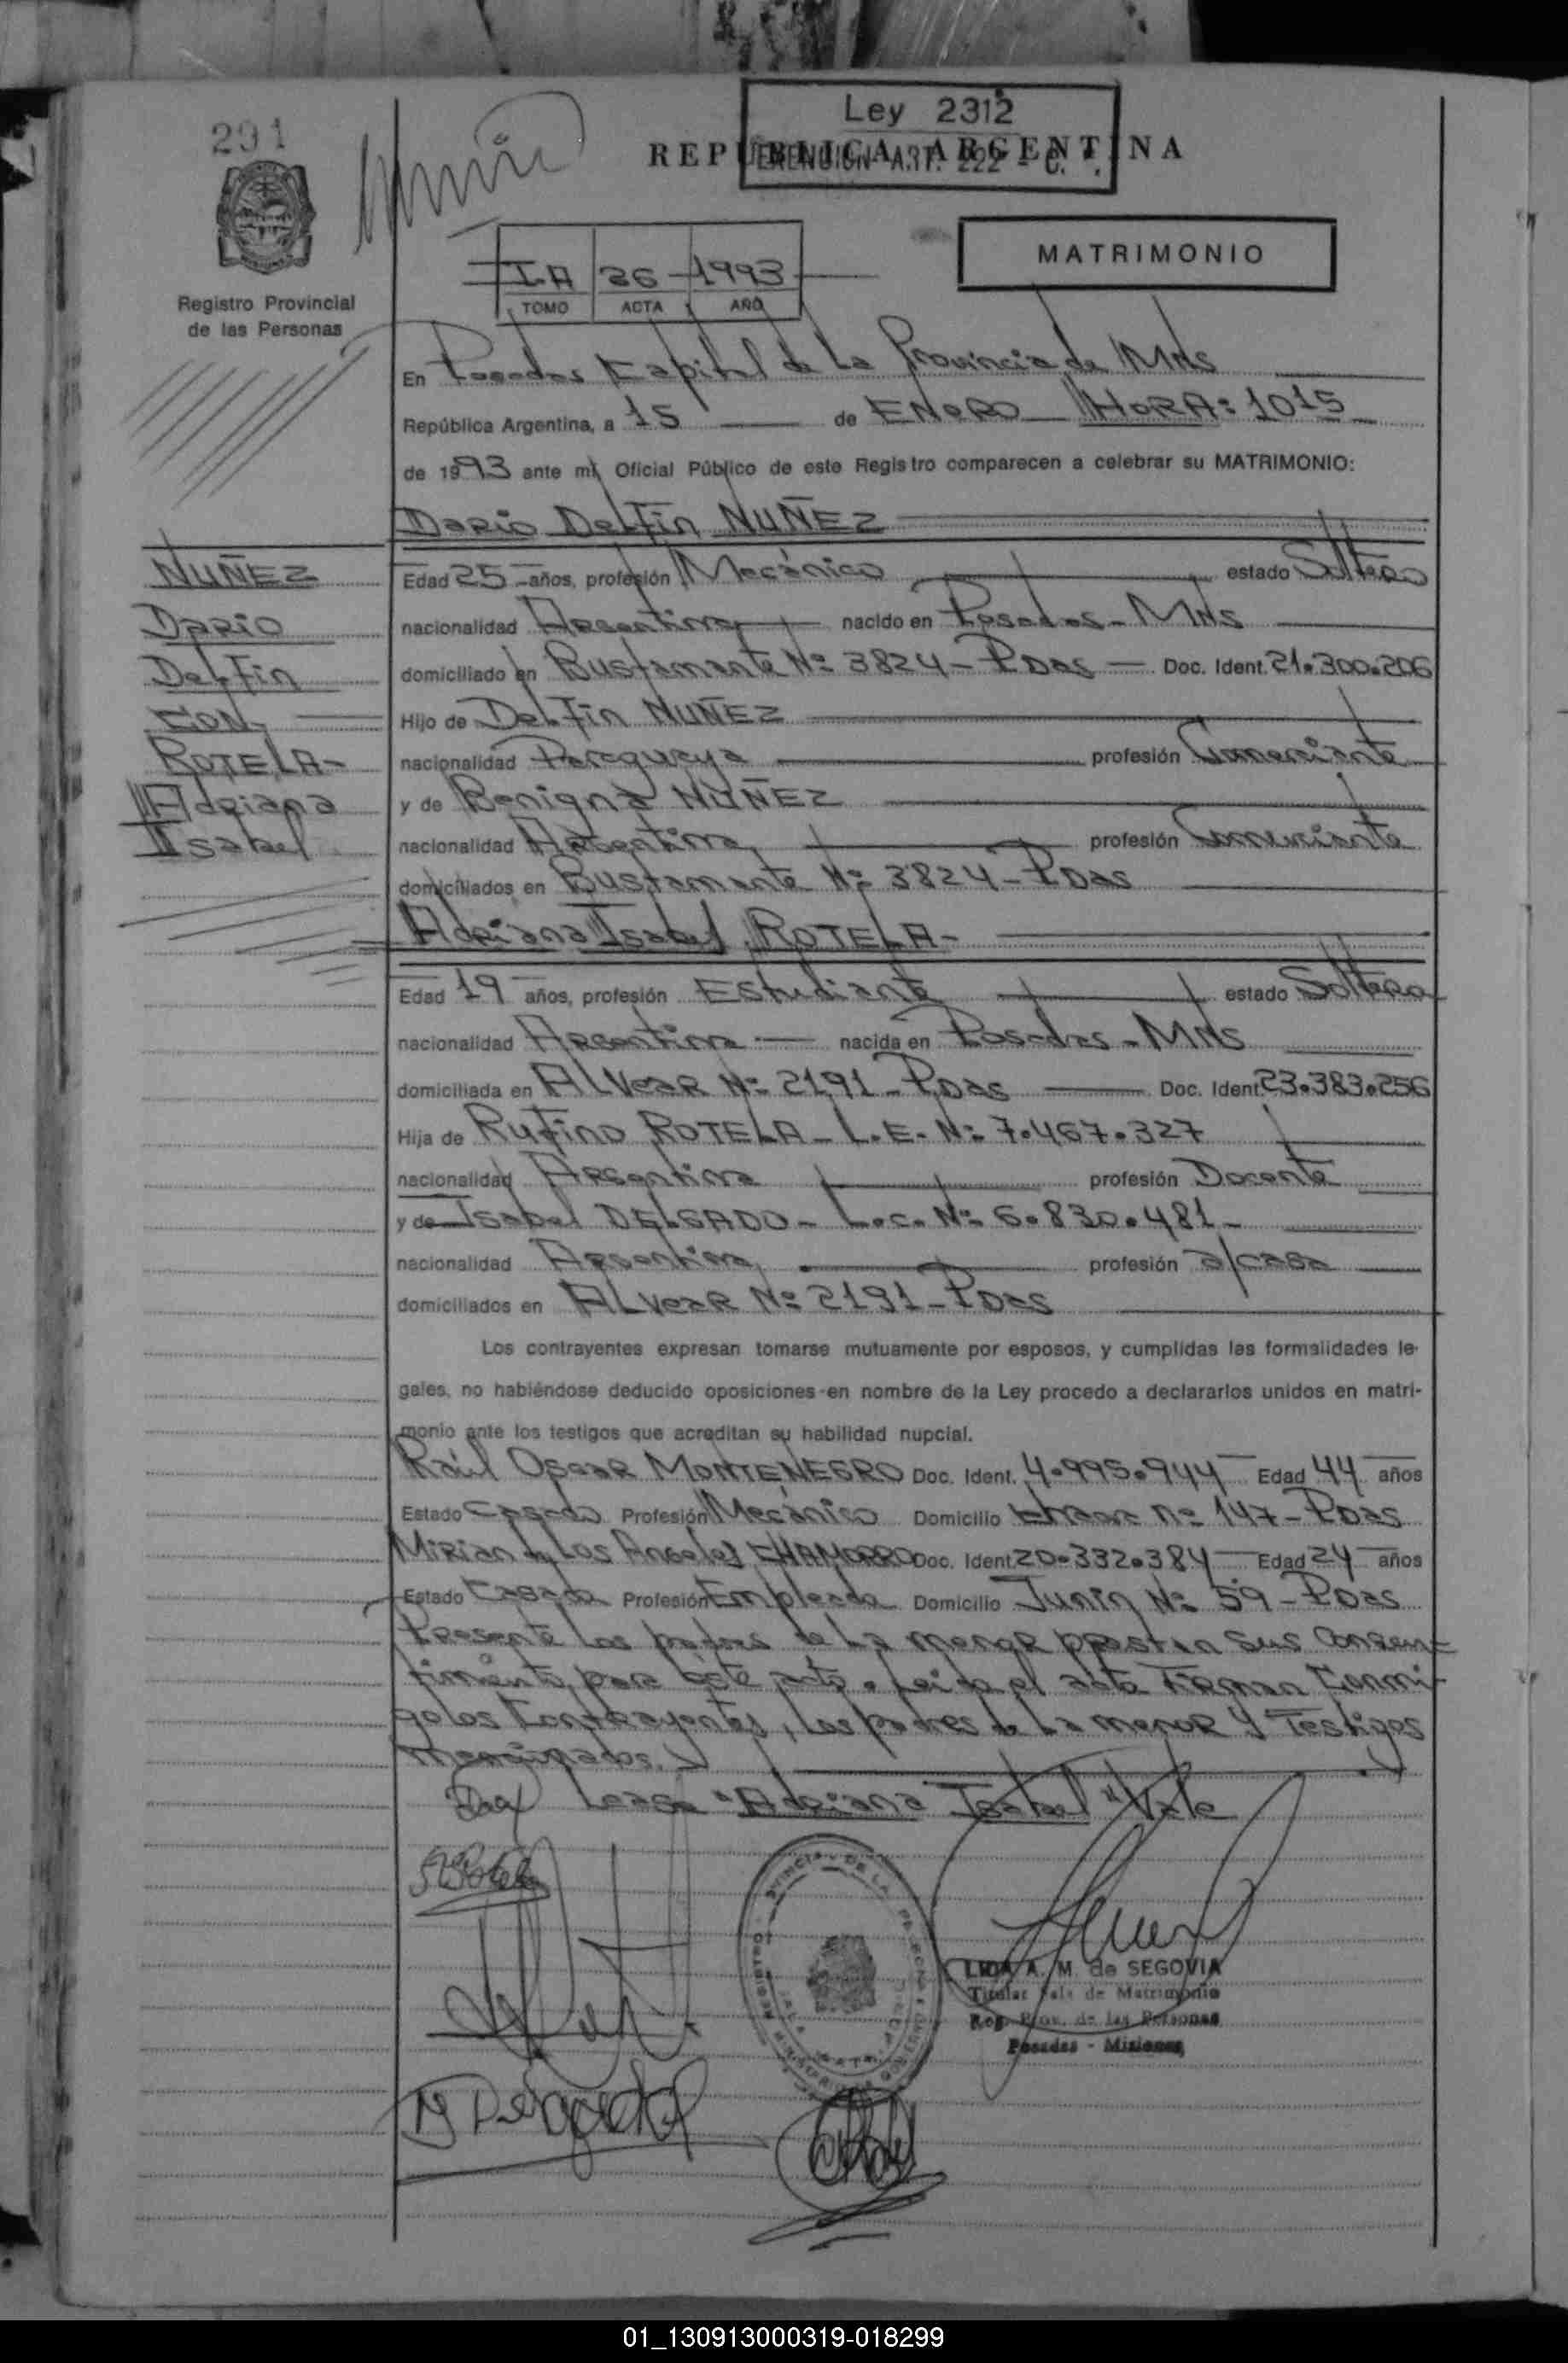 291
Ley 2312
REPUBLICA ARGENTINA
EXENCION ART. 222 - C.
MATRIMONIO
I-A 26 1993
TOMO ACTA AÑO
Registro Provincial
de las Personas
En Posadas Capital de La Provincia de Mnes
República Argentina, a 15 de ENERO HORA: 1015
de 1993 ante mí, Oficial Público de este Registro comparecen a celebrar su MATRIMONIO:
Dario Delfin NUÑEZ
NUÑEZ
Dario
Delfin
CON-
ROTELA-
Adriana
Isabel
Edad 25 años, profesión Mecánico estado Soltero
nacionalidad Argentina nacido en Posadas - Mnes
domiciliado en Bustamante Nº 3824 - Pdas Doc. Ident. 21.300.206
Hijo de Delfin NUÑEZ
nacionalidad Paraguaya profesión Comerciante
y de Benigna NUÑEZ
nacionalidad Argentina profesión Comerciante
domiciliados en Bustamante Nº 3824 - Pdas
Adriana Isabel ROTELA-
Edad 19 años, profesión Estudiante estado Soltera
nacionalidad Argentina nacida en Posadas - Mnes
domiciliada en ALVear Nº 2191 - Pdas Doc. Ident. 23.383.256
Hija de Rufino ROTELA - L.E. Nº 7.467.327
nacionalidad Argentina profesión Docente
y de Isabel DELGADO - L.C. Nº 6.830.481-
nacionalidad Argentina profesión a/casa
domiciliados en ALVear Nº 2191 - Pdas
Los contrayentes expresan tomarse mutuamente por esposos, y cumplidas las formalidades le-
gales, no habiéndose deducido oposiciones en nombre de la Ley procedo a declararlos unidos en matri-
monio ante los testigos que acreditan su habilidad nupcial.
Raúl Oscar MONTENEGRO Doc. Ident. 4.995.944 Edad 44 años
Estado Casado Profesión Mecánico Domicilio Nº 147 - Pdas
Mirian de Los Angeles CHAMORRO Doc. Ident. 20.332.384 Edad 24 años
Estado Casada Profesión Empleada Domicilio Junin Nº 59 - Pdas
Presente Los padres de La menor prestan sus Consen-
timiento para éste acto. Leida el acta Firman Conmi-
go los Contrayentes, Los padres de La menor y Testigos
mencionados.
Lease "Adriana Isabel" Vale
LIDIA A. M. de SEGOVIA
Titular Sala de Matrimonio
Reg. Prov. de las Personas
Posadas - Misiones
01_130913000319-018299